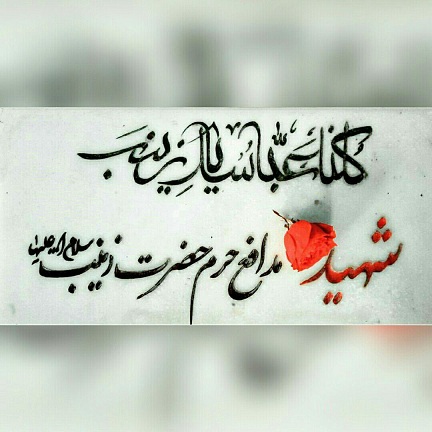 کلنا عباسك يا زينب
شهید مدافع حرم حضرت زینب سلام الله علیها